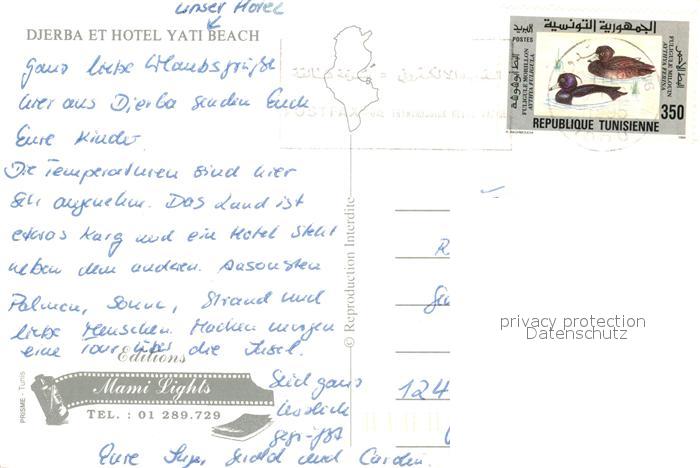 unser Hotel
DJERBA ET HOTEL YATI BEACH
Ganz liebe Urlaubsgrüße
hier aus Djerba senden Euch
Eure Kinder.
Die Temperaturen sind hier
sehr angenehm. Das Land ist
etwas karg und ein Hotel steht
neben dem anderen. Ansonsten
Palmen, Sonne, Strand und
liebe Menschen. Machen morgen
eine Tour über die Insel.
Seid ganz
herzlich
gegrüßt
Eure und
Editions
Mami Lights
TEL. : 01 289.729
PRISME - Tunis
© Reproduction Interdite
الجمهورية التونسية
POSTES
FULIGULE MORILLON
AYTHYA FULIGULA
FULIGULE MILOUIN
AYTHYA FERINA
350
REPUBLIQUE TUNISIENNE
124
privacy protection
Datenschutz